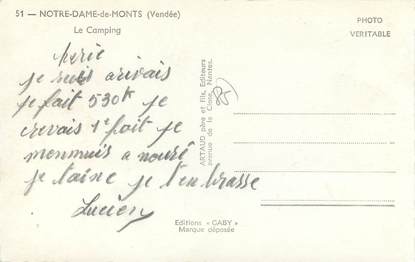 51 — NOTRE-DAME-de-MONTS (Vendée)
Le Camping
PHOTO
VERITABLE
je suis arivais
je fait 530k je
crevais 1e foit je
menmuis a
je t'aine je t'en brasse
Lucien
ARTAUD père et fils, Editeurs
avenue de la Close, Nantes.
85
Editions "GABY"
Marque déposée